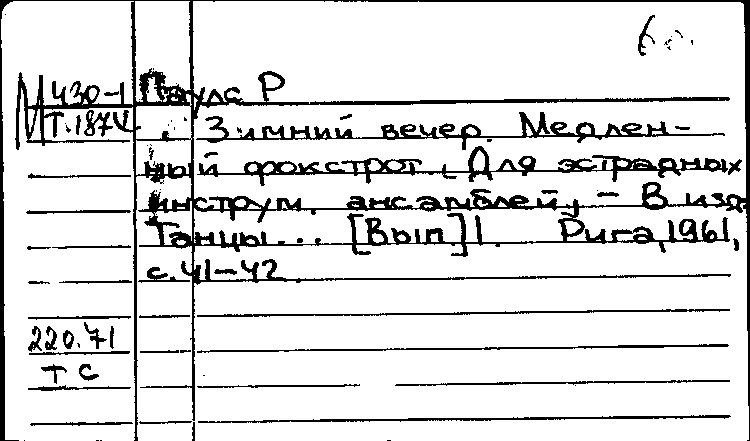 М 430-1 Паулс Р
Т.1874 . Зимний вечер. Медлен-
ный фокстрот. [Для эстрадных
инструм. ансамблей]. - В изд.
Танцы... [Вып.] 1. Рига, 1961,
с. 41-42
220.71
ТС